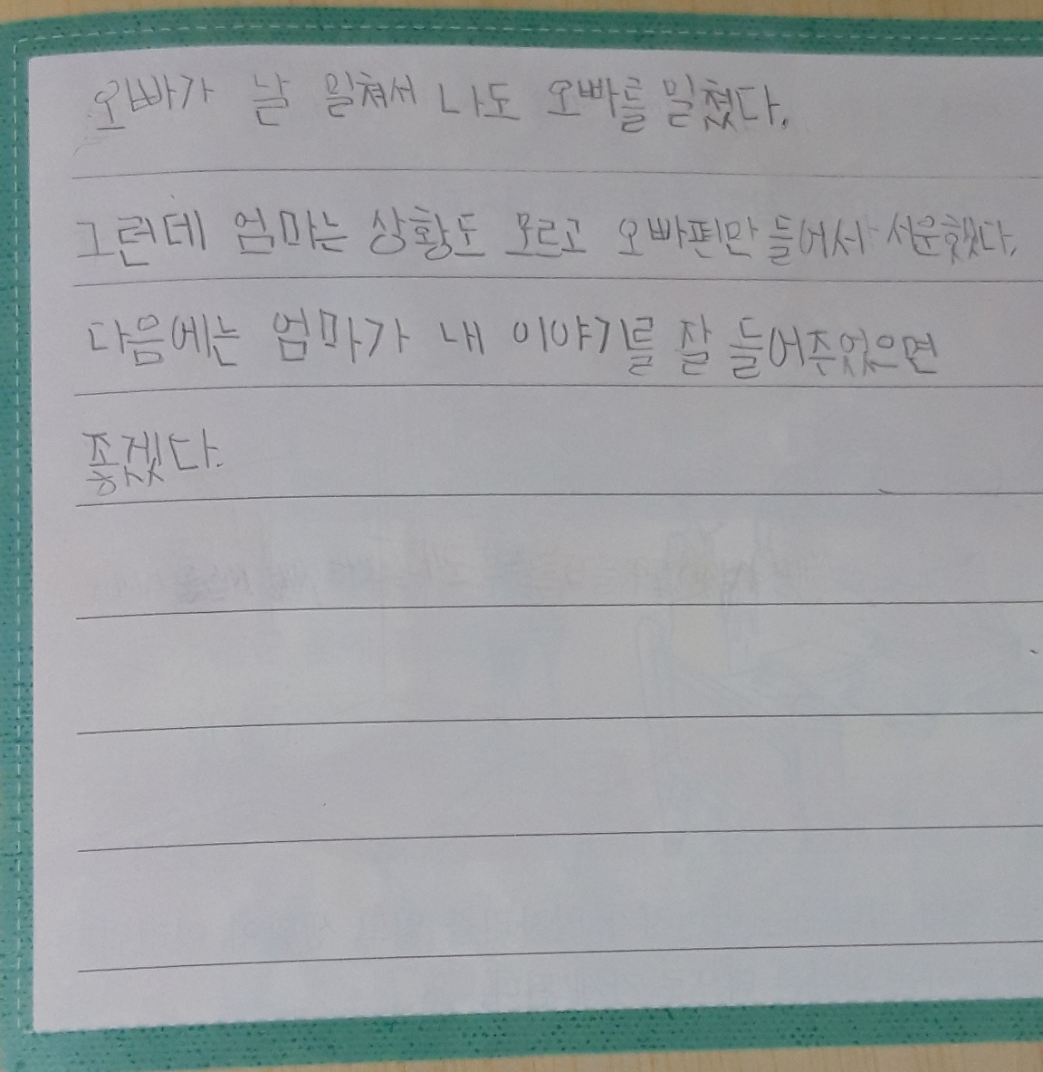 오빠가 날 밀쳐서 나도 오빠를 밀쳤다.
그런데 엄마는 상황도 모르고 오빠편만 들어서 서운했다.
다음에는 엄마가 내 이야기를 잘 들어주었으면
좋겠다.